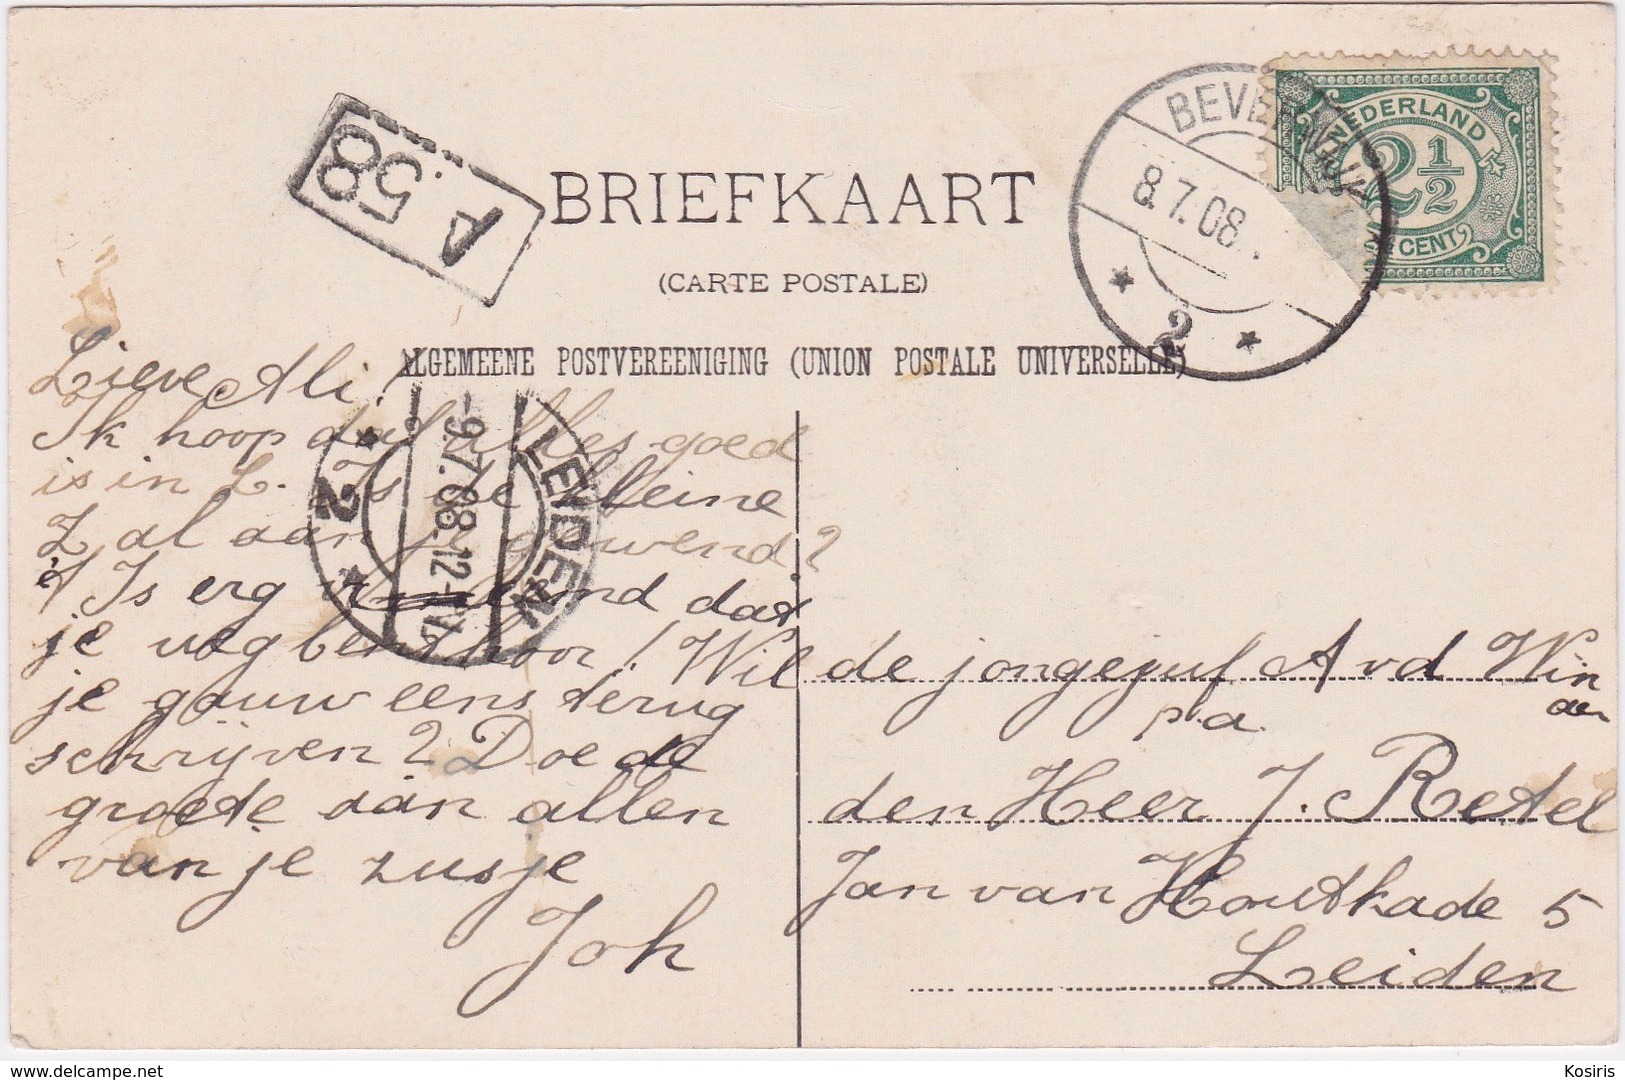 A 58
BRIEFKAART
(CARTE POSTALE)
ALGEMEENE POSTVEREENIGING (UNION POSTALE UNIVERSELLE)
BEVERWIJK
8.7.08
2
NEDERLAND
2½
CENT
LEIDEN
-9.7.08.12-1
2
Lieve Ali!
Ik hoop dat alles goed
is in L. Is de kleine
Zal aan je gewend?
't Is erg dat
je weg bent hoor! Wil
je gauw eens terug
schrijven? Doe de
groete aan allen
van je zusje
Joh
de jongejuf A vd Win
den
p/a
den Heer J. Retel
Jan van Houtkade 5
Leiden
delcampe.net
Kosiris